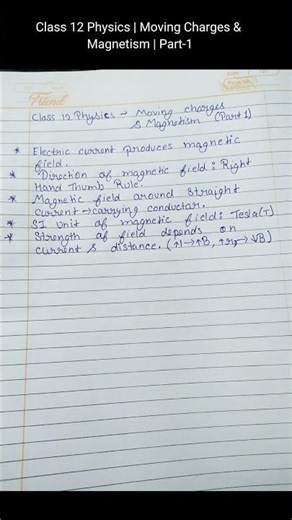 Class 12 Physics | Moving Charges &
Magnetism | Part-1
Friend
Class 12 Physics → Moving charges
& Magnetism (Part 1)
* Electric current produces magnetic
field.
* Direction of magnetic field: Right
Hand Thumb Rule.
* Magnetic field around straight
current → carrying conductor.
* SI Unit of magnetic field: Tesla(T)
* Strength of field depends on
current & distance. (↑I→↑B, ↑r→↓B)